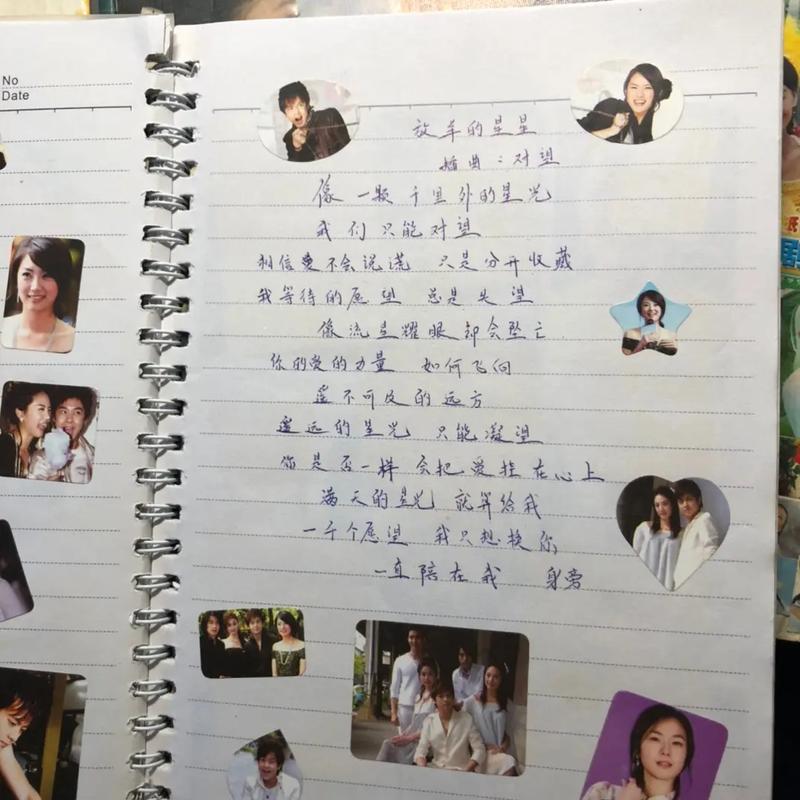 No
Date
放羊的星星
插曲：对望
像一颗千里外的星光
我们只能对望
相信爱不会说谎 只是分开收藏
我等待的愿望 总是失望
像流星耀眼却会坠亡
你的爱的力量 如何飞向
遥不可及的远方
遥远的星光 只能凝望
你是否一样 会把爱挂在心上
满天的星光 就算给我
一千个愿望 我只想换你
一直陪在我 身旁